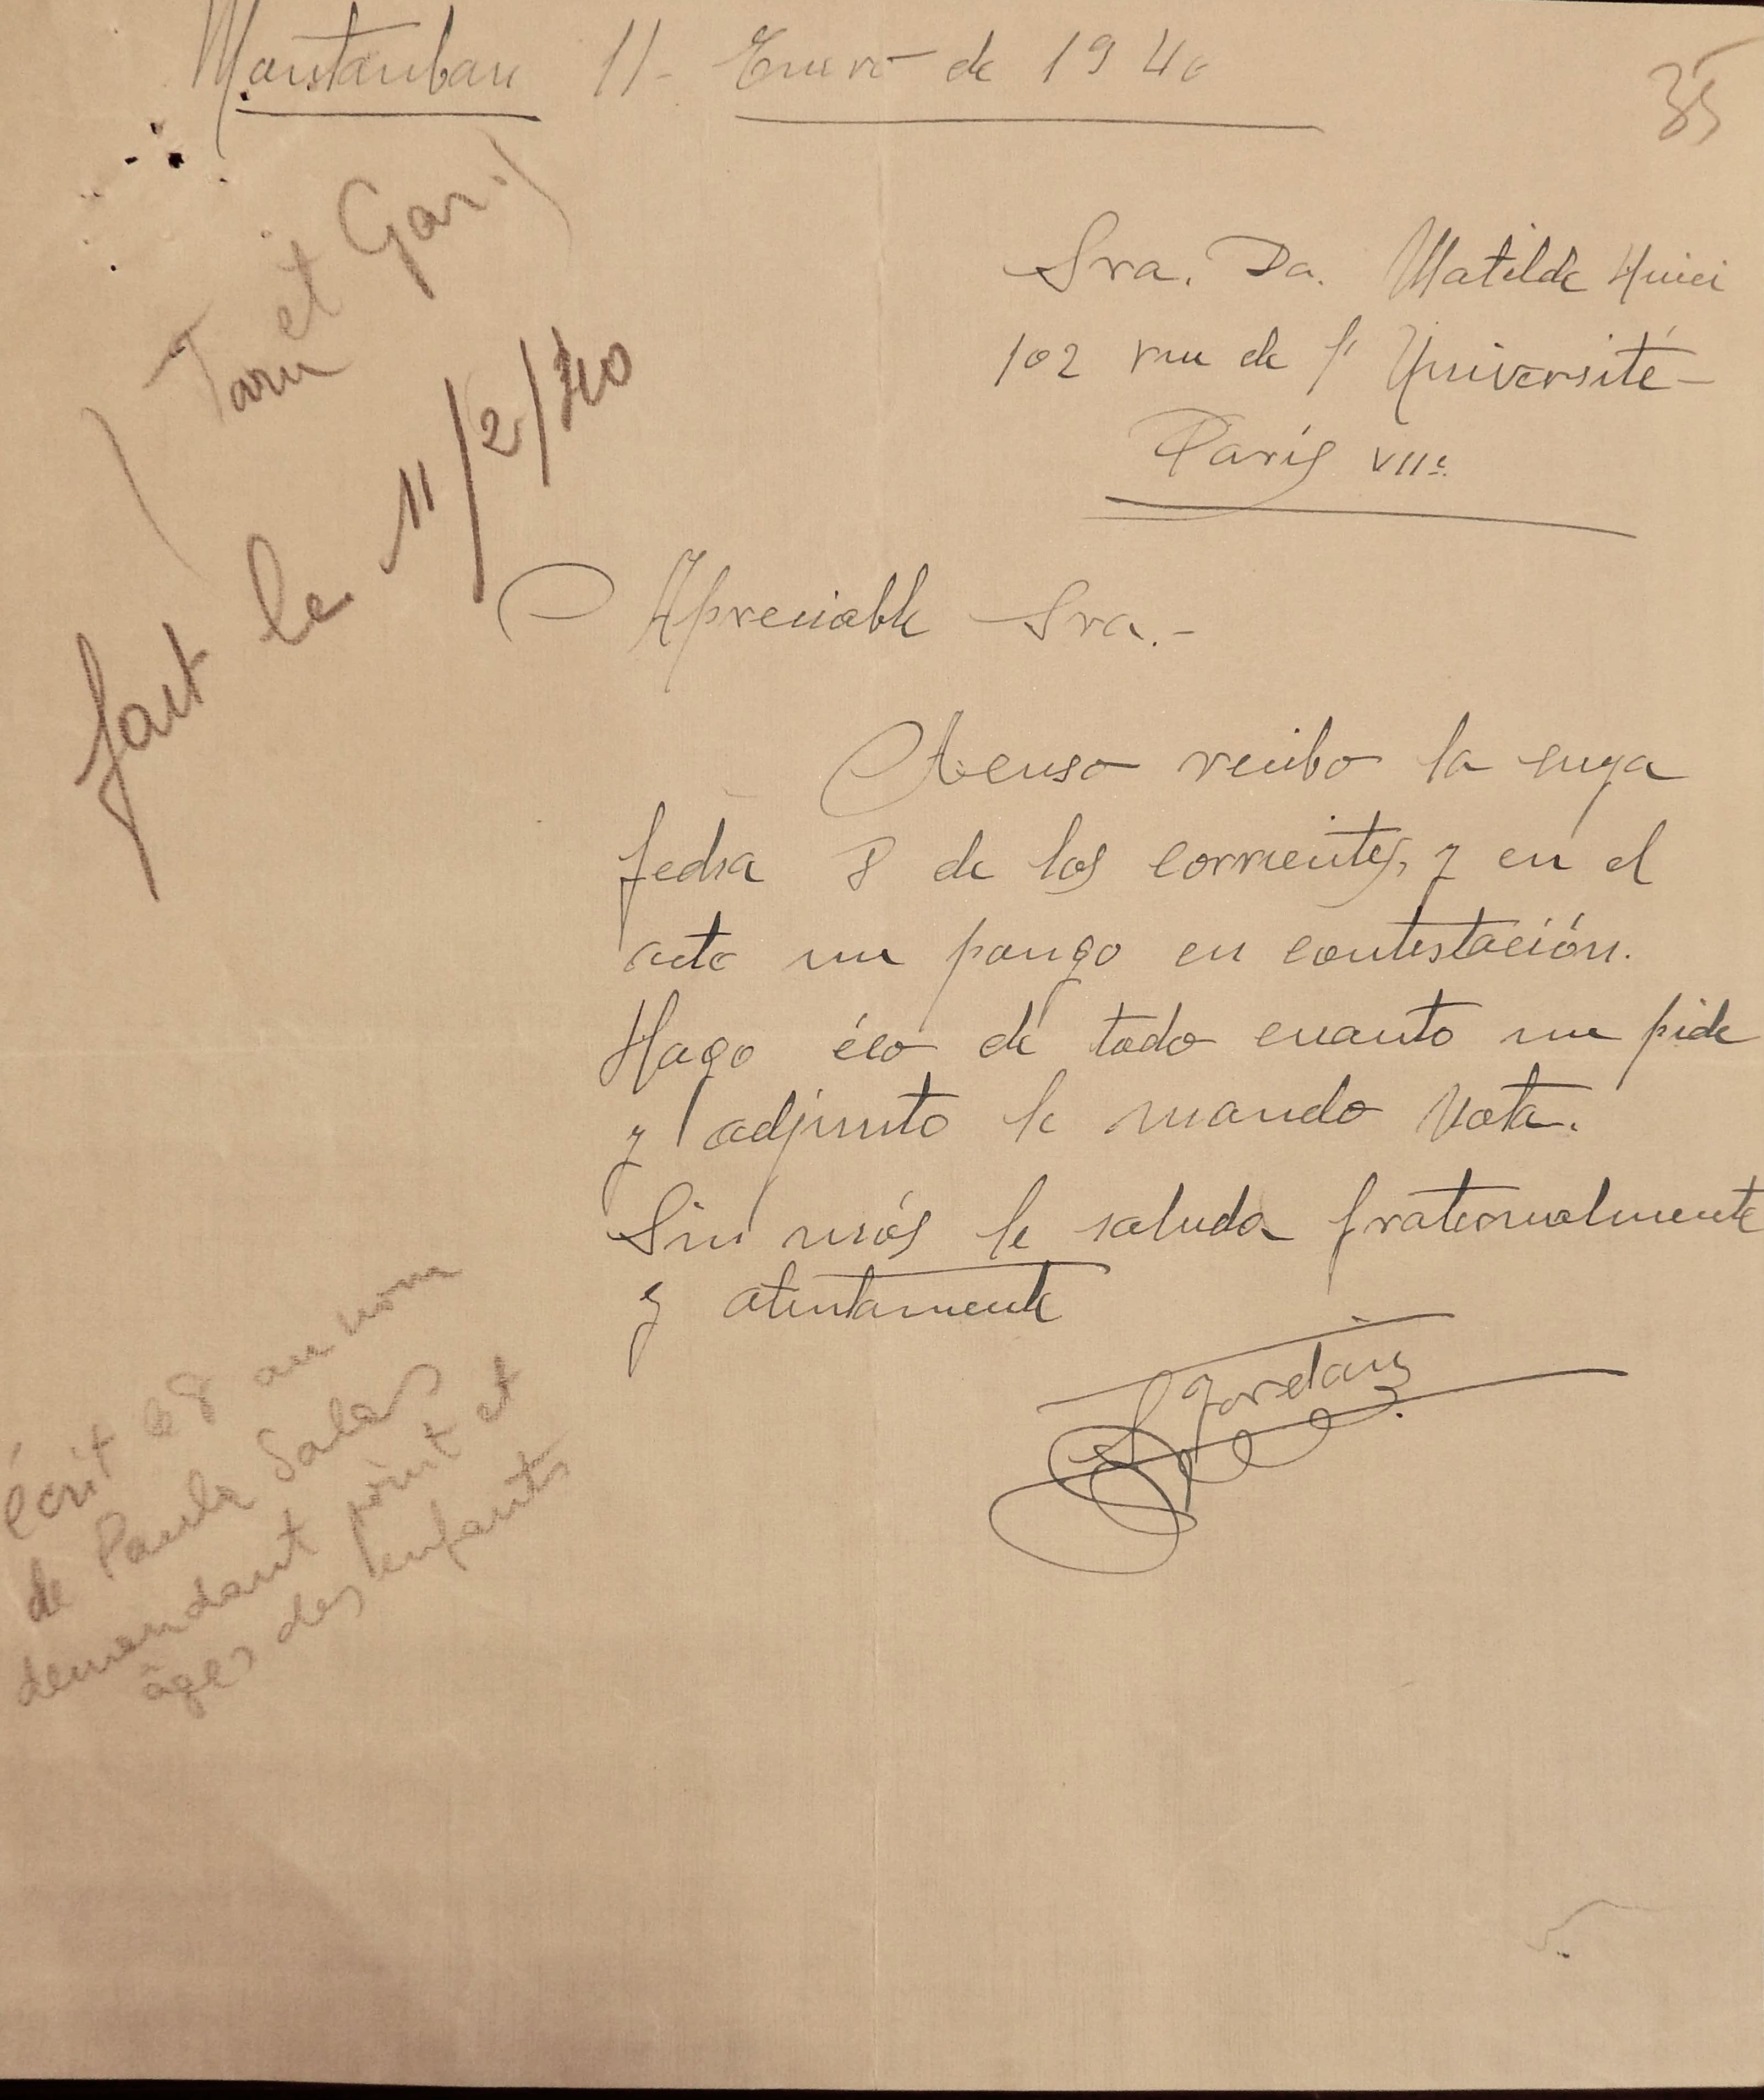 Montauban 11- Enero de 1940
35
(Tarn et Gar.)
fait le 11/2/40
Sra. Da. Matilde Huici
102 rue de l'Université-
París VIIe.
Apreciable Sra.-
Acuso recibo la suya
fecha 8 de los corrientes, y en el
acto me pongo en contestación.
Hago éco de todo cuanto me pide
y adjunto le mando Nota.
Sin más le saluda fraternalmente
y atentamente
écrit le 8 au nom
de Paula Salas
demandant point et
âges des enfants